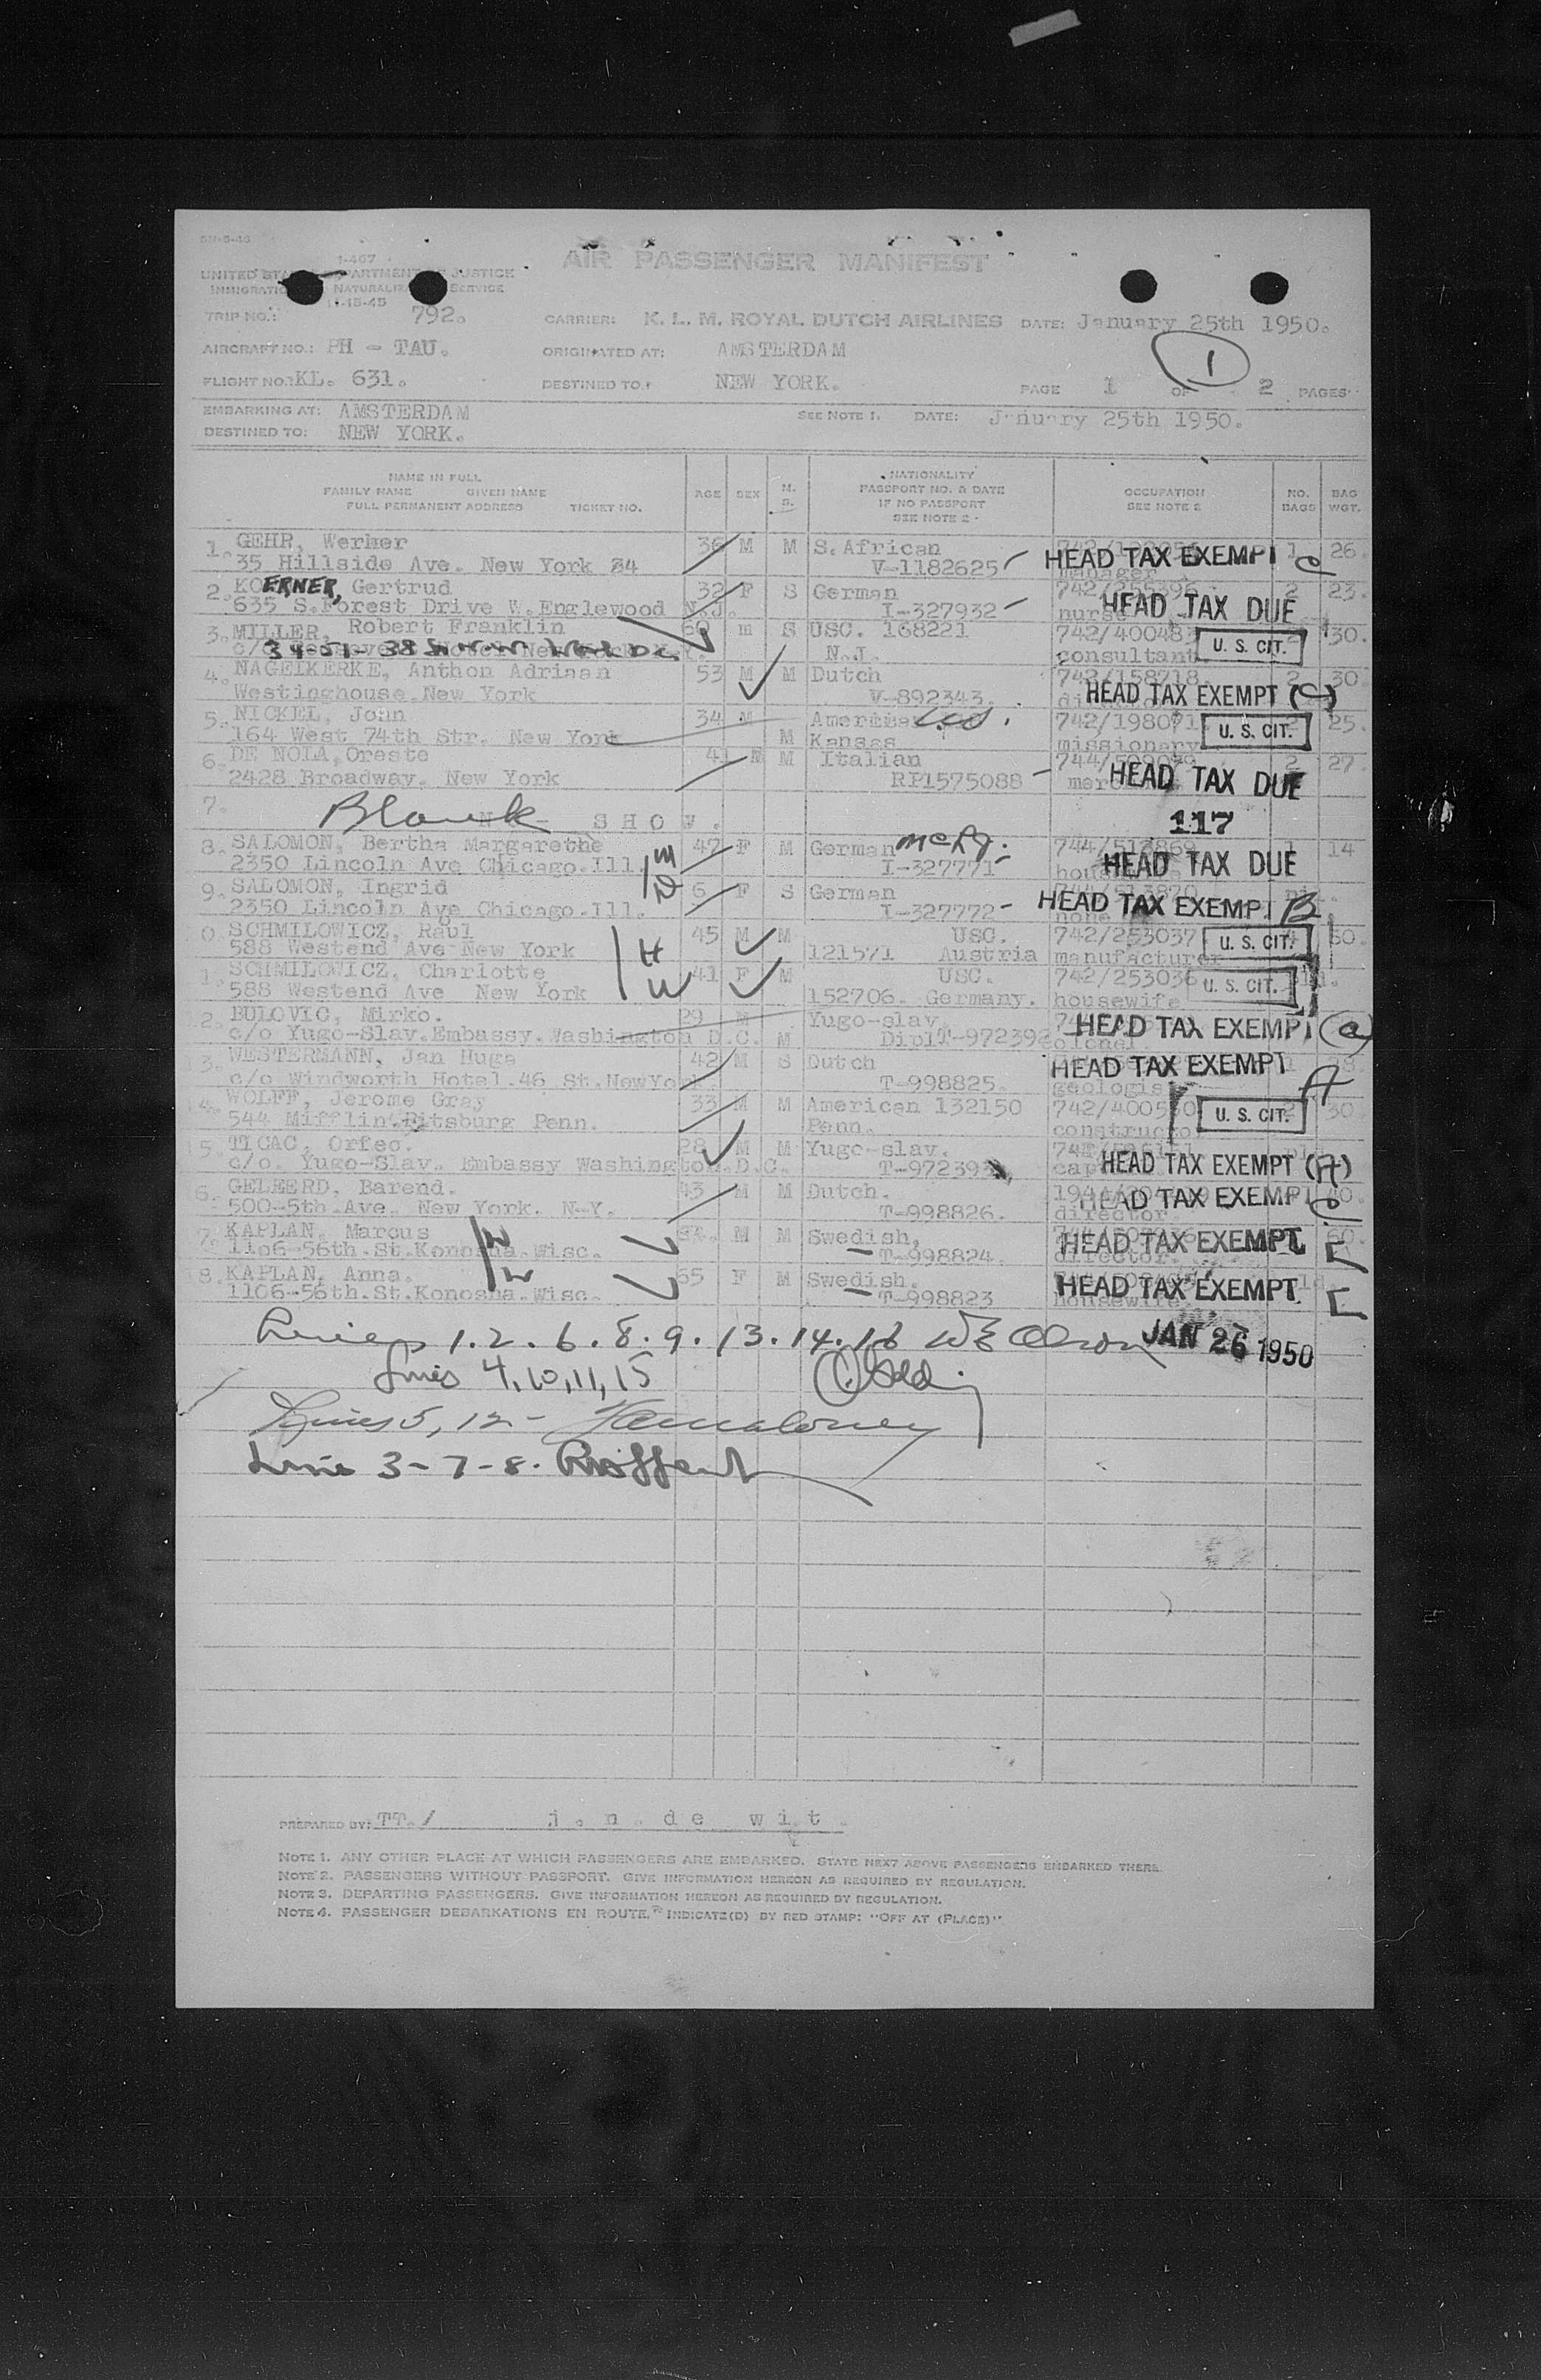 SN-5-46
I-467
AIR PASSENGER MANIFEST
UNITED STA PARTMENT JUSTICE
IMMIGRATIO NATURALIZA SERVICE
11-15-45
TRIP NO.: 792. CARRIER: K. L. M. ROYAL DUTCH AIRLINES DATE: January 25th 1950.
AIRCRAFT NO.: PH - TAU. ORIGINATED AT: AMSTERDAM
1
FLIGHT NO.: KL. 631. DESTINED TO: NEW YORK. PAGE 1 OF 2 PAGES
EMBARKING AT: AMSTERDAM SEE NOTE 1. DATE: January 25th 1950.
DESTINED TO: NEW YORK.
NAME IN FULL
FAMILY NAME GIVEN NAME
FULL PERMANENT ADDRESS TICKET NO.
AGE SEX M. S.
NATIONALITY
PASSPORT NO. & DATE
IF NO PASSPORT
SEE NOTE 2
OCCUPATION
SEE NOTE 2
NO. BAGS
BAG WGT.
1. GEHR, Werner 36 M M S.African 1 26.
35 Hillside Ave. New York 34 V-1182625 manager HEAD TAX EXEMPT C
2. KOERNER, Gertrud 32 F S German 2 23.
635 S.Forest Drive W.Englewood N.J. I-327932 nurse HEAD TAX DUE
3. MILLER, Robert Franklin 60 m S USC. 168221 742/400483 30.
N.J. consultant U. S. CIT.
4. NAGELKERKE, Anthon Adriaan 53 M M Dutch 742/158718. 2 30.
Westinghouse.New York V-892343. HEAD TAX EXEMPT (C)
5. NICKEL, John 34 M America U.S. 742/198071 25.
164 West 74th Str. New York M Kansas missionary U. S. CIT.
6. DE NOLA, Oreste 41 M M Italian 2 27.
2428 Broadway. New York RP1575088 HEAD TAX DUE
7. Blank SHOW. 117
8. SALOMON, Bertha Margarethe 47 F M German 744/513869 1 14
2350 Lincoln Ave Chicago.Ill. M I-327771 HEAD TAX DUE
9. SALOMON, Ingrid D 6 F S German 744/513870
2350 Lincoln Ave Chicago.Ill. I-327772 none HEAD TAX EXEMPT B
0. SCHMILOWICZ, Raul H 45 M M USC. 742/253037 U. S. CIT. 50.
588 Westend Ave New York 121571 Austria manufacturer
1. SCHMILOWICZ, Charlotte W 41 F M USC. 742/253036 U. S. CIT.
588 Westend Ave New York 152706. Germany. housewife
2. BULOVIC, Mirko. 29 M Yugo-slav.
c/o Yugo-Slav.Embassy.Washington D.C. M DiplT-972392 colonel HEAD TAX EXEMPT (a)
3. WESTERMANN, Jan Hugo 42 M S Dutch
c/o Windworth Hotel.46 St.NewYo T-998825. geologist HEAD TAX EXEMPT A
4. WOLFF, Jerome Gray 33 M M American 132150 742/400530 30.
544 Mifflin.Pitsburg Penn. Penn. constructor U. S. CIT.
5. TICAC, Orfeo. 28 M M Yugo-slav.
c/o. Yugo-Slav. Embassy Washington.D.C. T-97239 HEAD TAX EXEMPT (A)
6. GELEERD, Barend. 43 M M Dutch. 40.
500-5th Ave. New York. N-Y. T-998826. director HEAD TAX EXEMPT C
7. KAPLAN, Marcus H M M Swedish.
1106-56th.St.Konosha.Wisc. T-998824. director. HEAD TAX EXEMPT E
8. KAPLAN, Anna. W 65 F M Swedish.
1106-56th.St.Konosha.Wisc. T-998823 housewife. HEAD TAX EXEMPT E
1. 2. 6. 8. 9. 13. 14. 16 WE Olson JAN 26 1950
Lines 4, 10, 11, 15
Lines 5, 12 -
Line 3-7-8.
PREPARED BY: TT./ j.n.de wit.
NOTE 1. ANY OTHER PLACE AT WHICH PASSENGERS ARE EMBARKED. STATE NEXT ABOVE PASSENGERS EMBARKED THERE.
NOTE 2. PASSENGERS WITHOUT PASSPORT. GIVE INFORMATION HEREON AS REQUIRED BY REGULATION.
NOTE 3. DEPARTING PASSENGERS. GIVE INFORMATION HEREON AS REQUIRED BY REGULATION.
NOTE 4. PASSENGER DEBARKATIONS EN ROUTE. INDICATE(D) BY RED STAMP: "OFF AT (PLACE)"